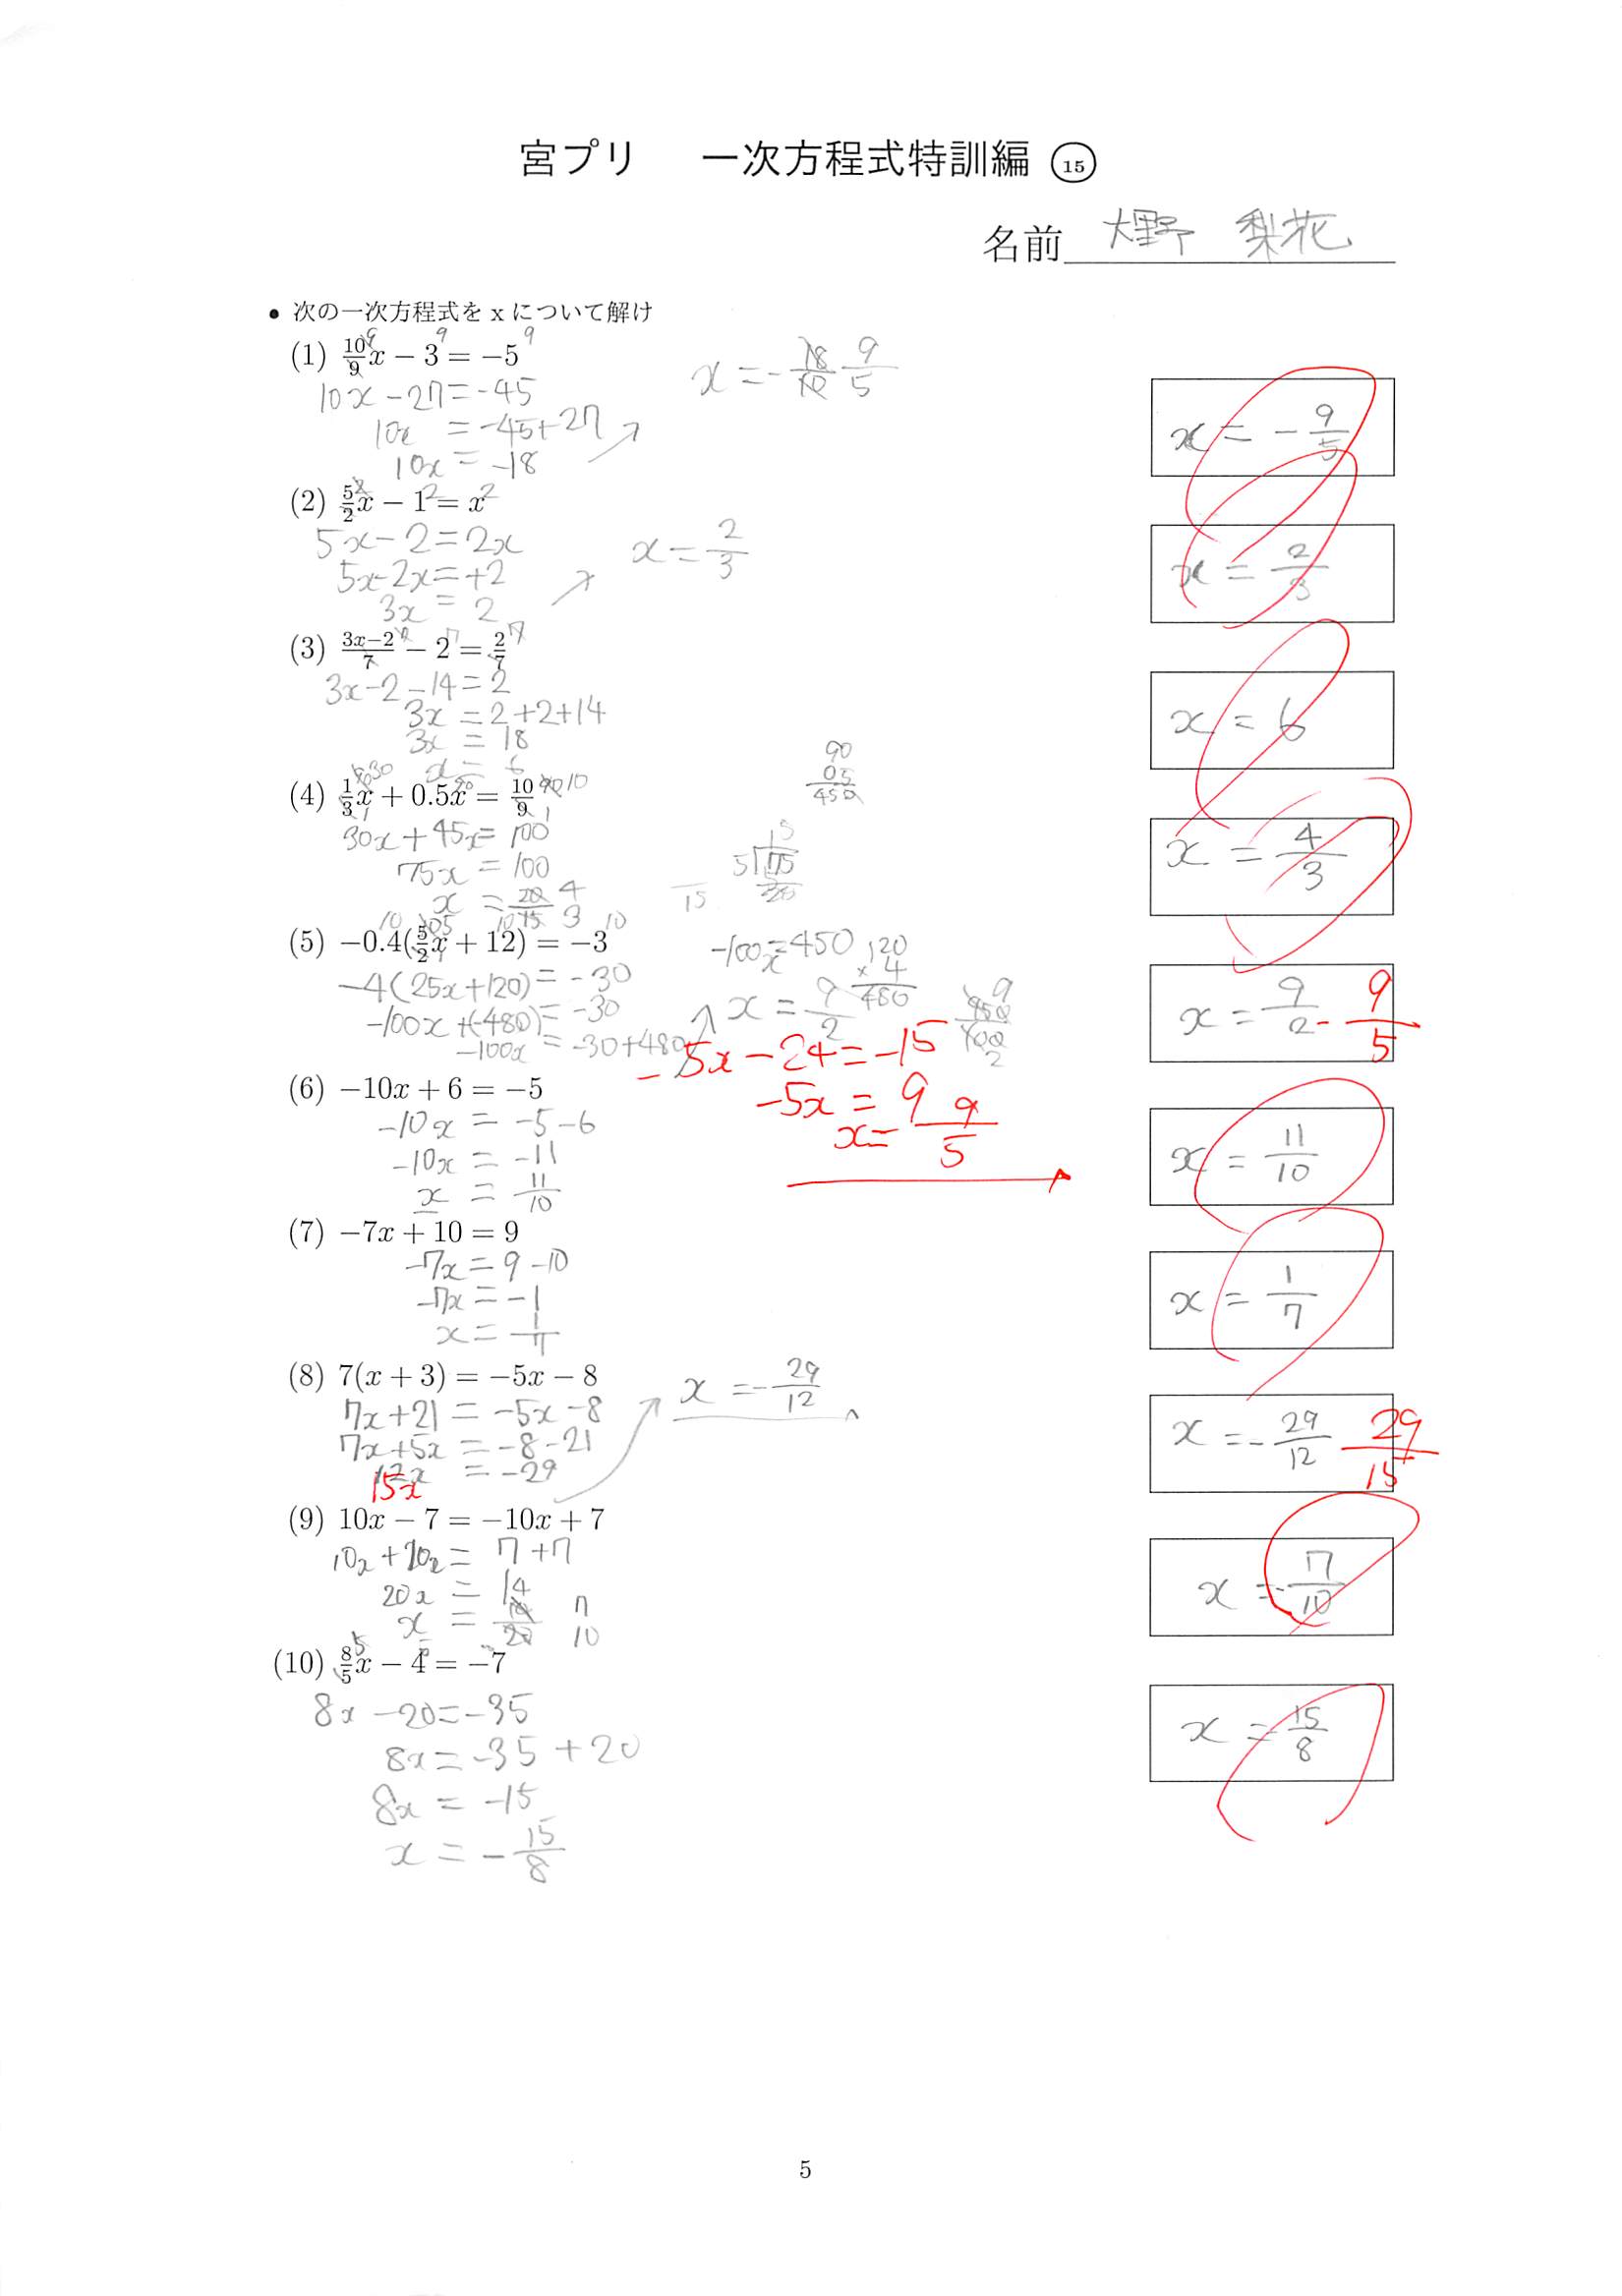 宮プリ 一次方程式特訓編 ⑮
名前 大野 梨花
• 次の一次方程式を x について解け
(1) 10/9 x − 3 = −5
9 9 9
10x − 27 = −45
10x = −45+27
10x = −18
x = − 18/10 9/5
x = − 9/5
(2) 5/2 x − 1 = x
2 2 2
5x − 2 = 2x
5x−2x = +2
3x = 2
x = 2/3
x = 2/3
(3) (3x−2)/7 − 2 = 2/7
7 7 7
3x−2−14 = 2
3x = 2+2+14
3x = 18
x = 6
x = 6
(4) 1/3 x + 0.5x = 10/9
30x + 45x = 100
75x = 100
x = 20/15 4/3
90
05
450
15
5)75
15
x = 4/3
(5) −0.4(5/2 x + 12) = −3
10 10 10
−4(25x+120) = −30
−100x+(−480) = −30
−100x = −30+480
−100x = 450
x = 9/2
120
× 4
480
450/100 9/2
−5x − 24 = −15
−5x = 9
x = 9/5
x = 9/2 − 9/5
(6) −10x + 6 = −5
−10x = −5−6
−10x = −11
x = 11/10
x = 11/10
(7) −7x + 10 = 9
−7x = 9−10
−7x = −1
x = 1/7
x = 1/7
(8) 7(x + 3) = −5x − 8
7x+21 = −5x−8
7x+5x = −8−21
12x = −29
15x
x = − 29/12
x = − 29/12 29/15
(9) 10x − 7 = −10x + 7
10x+10x = 7+7
20x = 14
x = 14/20 7/10
x = 7/10
(10) 8/5 x − 4 = −7
8x −20 = −35
8x = −35 + 20
8x = −15
x = − 15/8
x = − 15/8
5